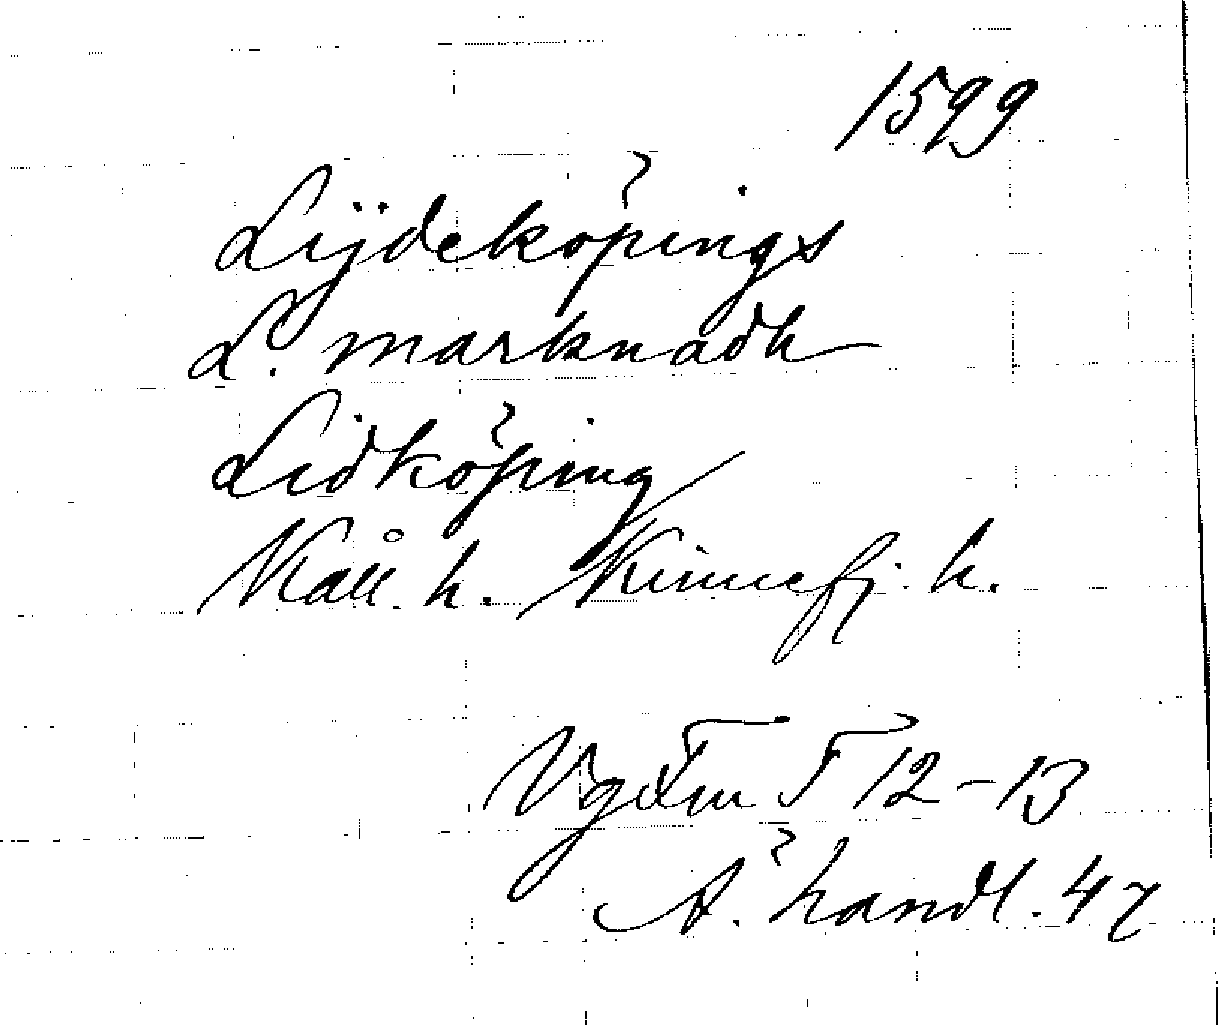 1599
Lijdeköpings
L. marknadh
Lidköping
Kåll. h. Kinnefj. h.
T 12-13
Ä. handl. 47